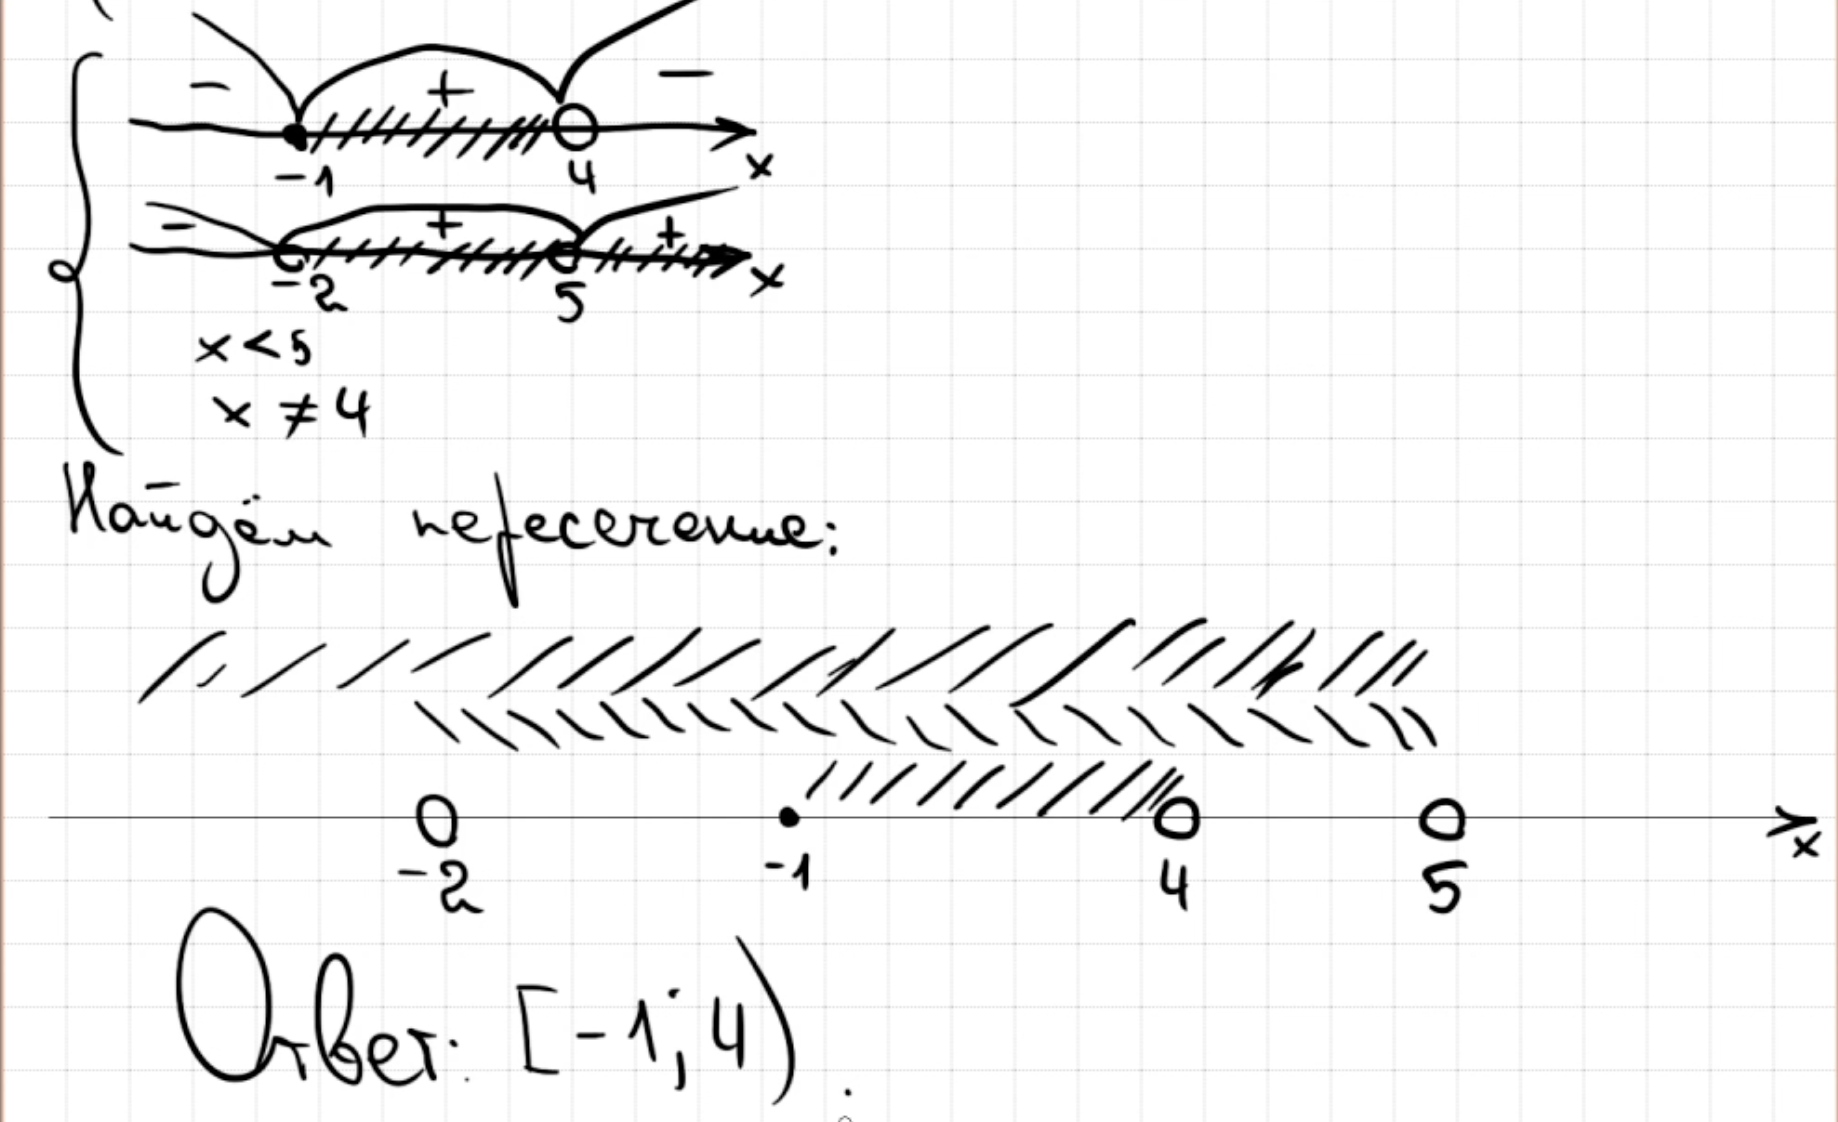 - + -
-1 4 x
- + +
-2 5 x
x < 5
x ≠ 4
Найдём пересечение:
-2 -1 4 5 x
Ответ: [-1; 4).